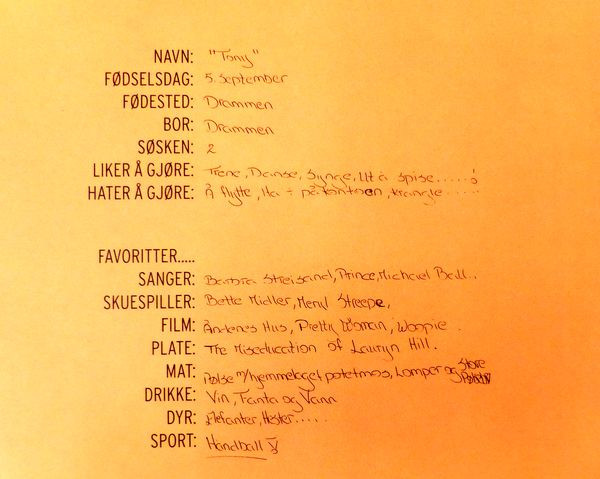 NAVN: "Tony"
FØDSELSDAG: 5. september
FØDESTED: Drammen
BOR: Drammen
SØSKEN: 2
LIKER Å GJØRE: Trene, Danse, Synge, Ut å spise.....
HATER Å GJØRE: Å flytte, Ha ÷ på kontoen, krangle.....
FAVORITTER.....
SANGER: Barbra Streisand, Prince, Michael Ball..
SKUESPILLER: Bette Midler, Meryl Streepe,
FILM: Åndenes Hus, Pretty Woman, Woopie.
PLATE: The Miseducation of Lauryn Hill.
MAT: Pølse m/hjemmelaget potetmos, Lomper og Store
DRIKKE: Vin, Fanta og Vann
DYR: Elefanter, Hester.....
SPORT: Håndball